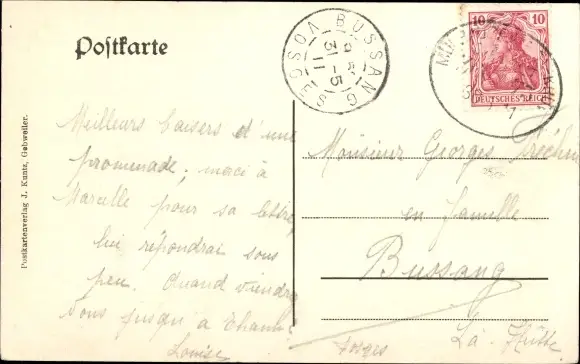 Postkarte
BUSSANG
VOSGES
31 -5
11
10 10
DEUTSCHES REICH
Postkartenverlag J. Kuntz, Gebweiler.
Meilleurs baisers d'une
promenade, merci à
Marcelle pour sa lettre,
lui répondrai sous
peu. Quand viendrez
vous jusqu'à Thann?
Louise
Monsieur Georges
en famille
Bussang
La Hutte
Vosges